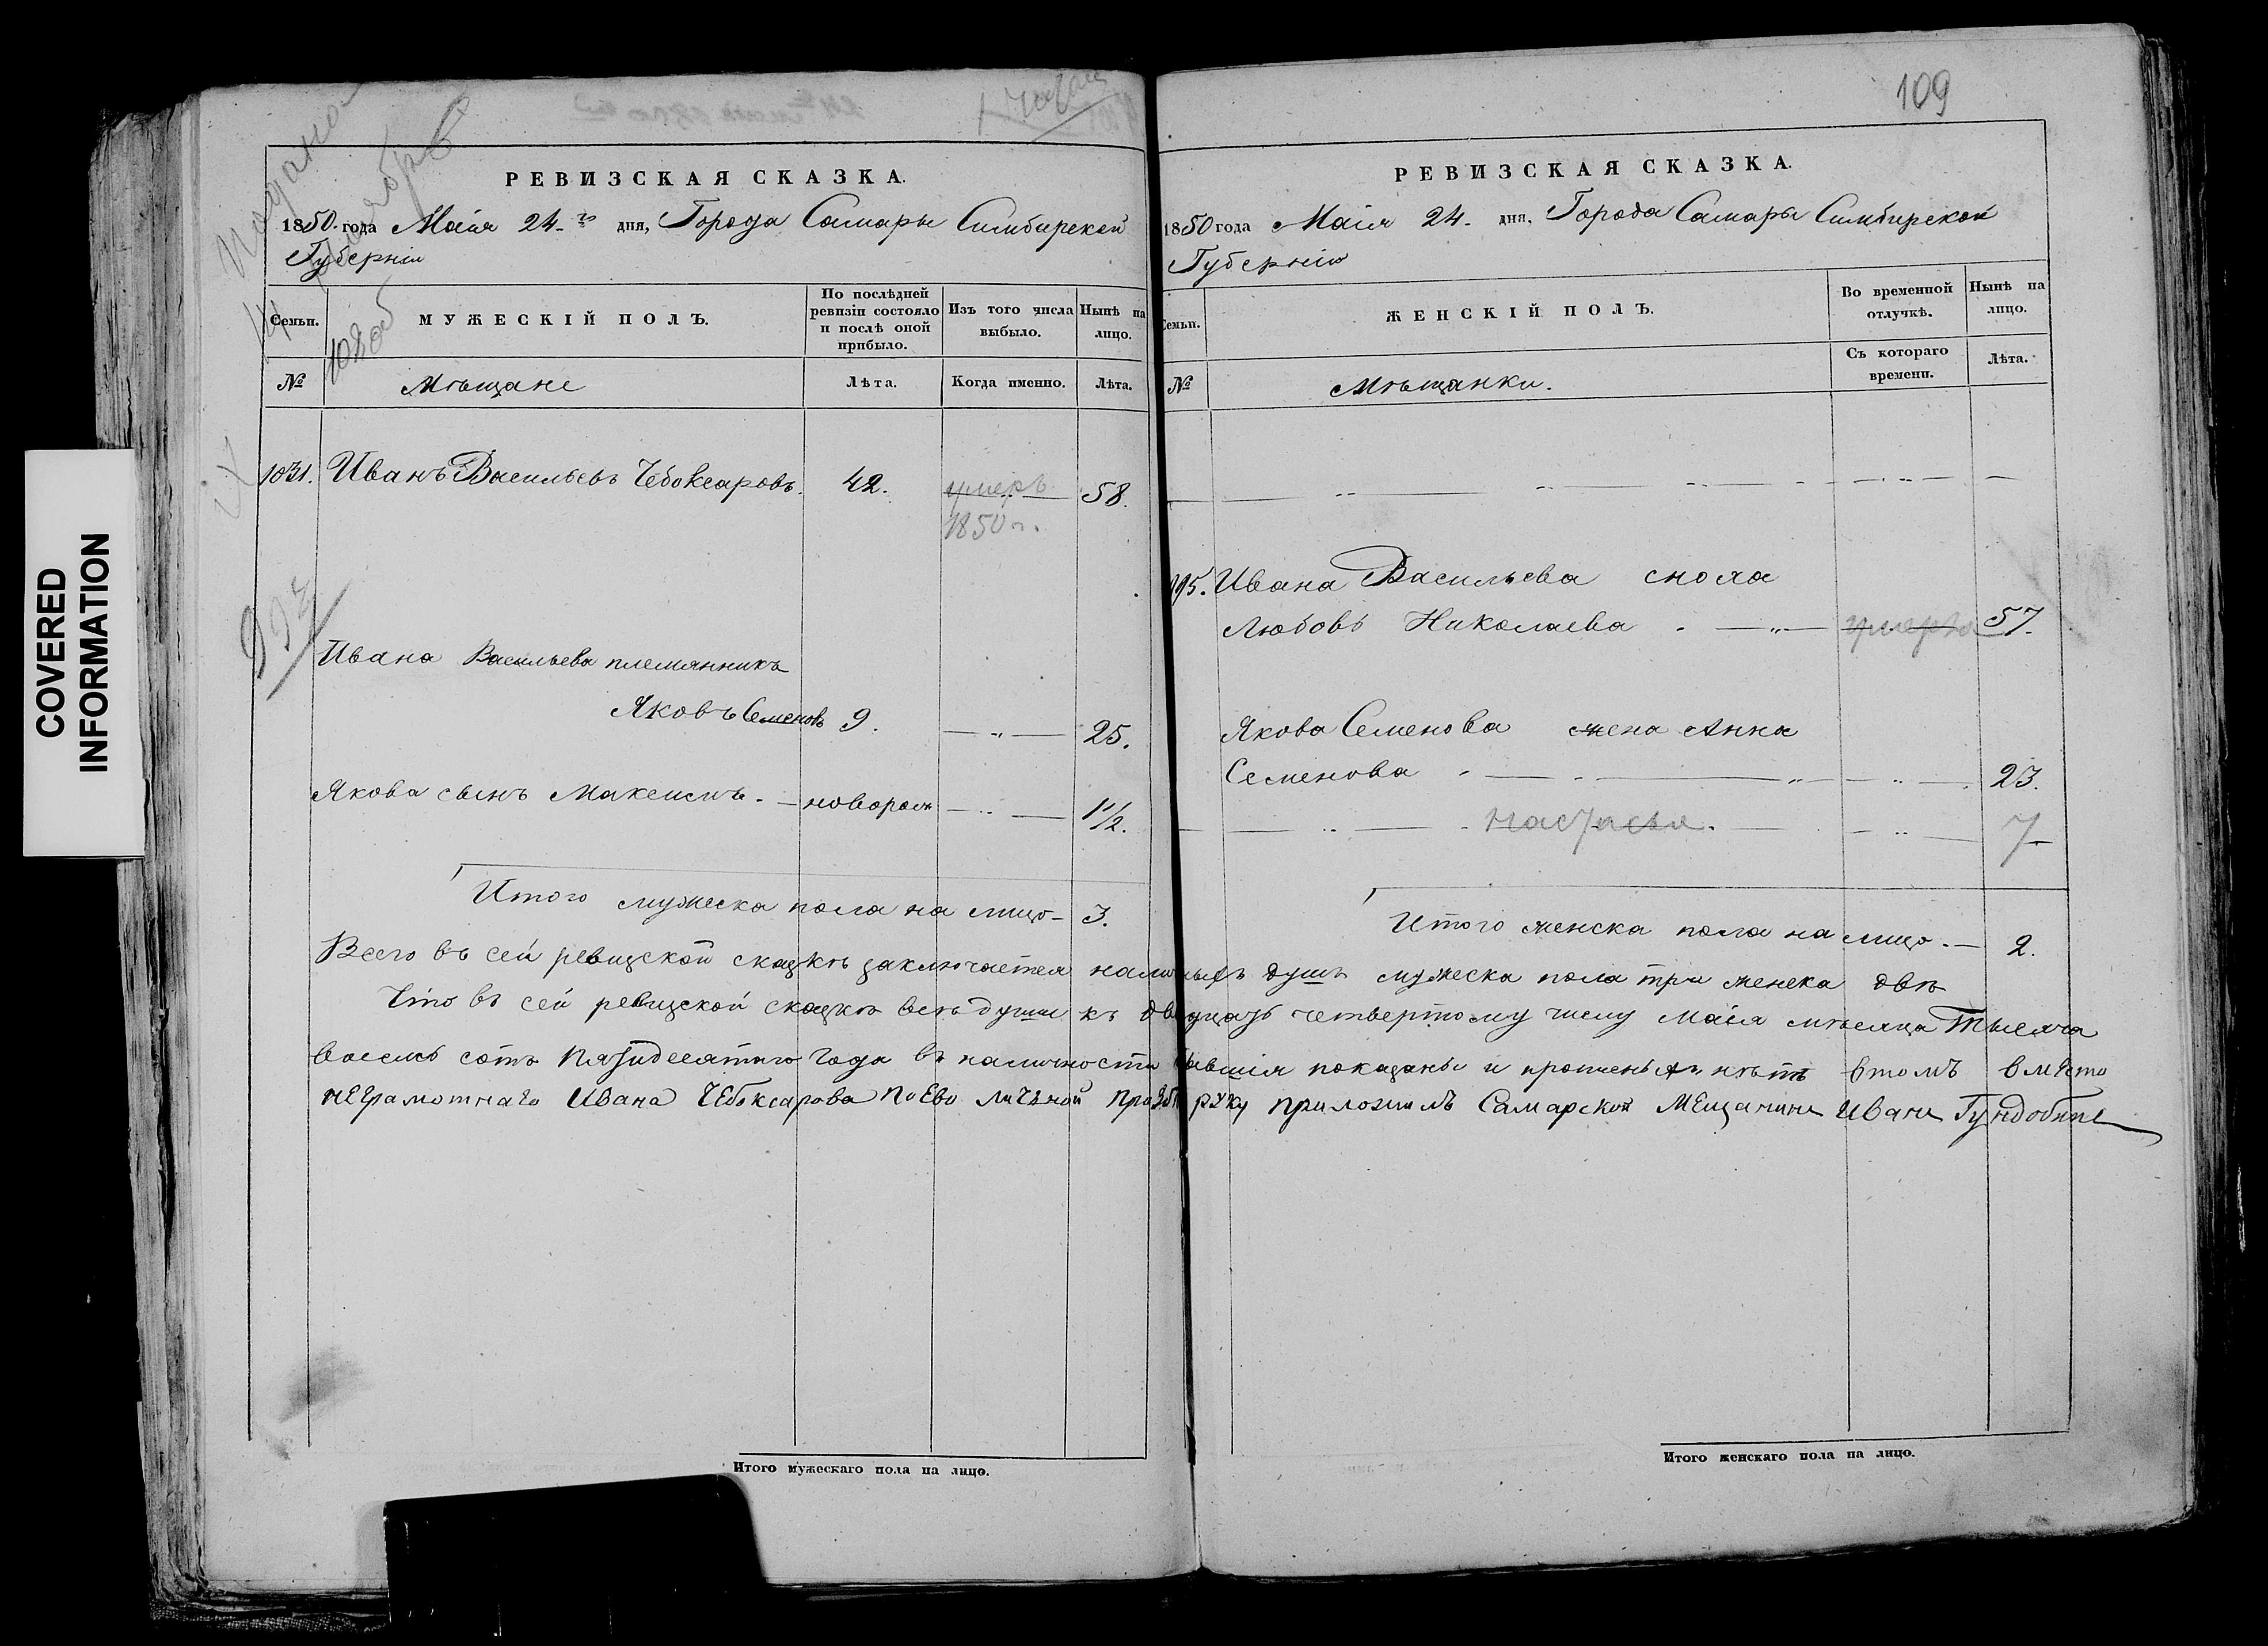 COVERED
INFORMATION
Подано
14 Ноября
102 об
РЕВИЗСКАЯ СКАЗКА.
1850. года Маія 24-го дня, Города Самары Симбирской
Губерніи
Семьи.
МУЖЕСКІЙ ПОЛЪ.
По послѣдней
ревизіи состояло
и послѣ оной
прибыло.
Изъ того числа
выбыло.
Нынѣ на
лицо.
№
Мѣщане
Лѣта.
Когда именно.
Лѣта.
1031. Иванъ Васильевъ Чебоксаровъ. 42. умеръ 58.
1850 г.
Ивана Васильева племянникъ
Яковъ Семеновъ 9. — „ — 25.
Якова сынъ Максимъ. — новорож — „ — 1 1/2.
Итого мужеска пола на лицо — 3.
109
РЕВИЗСКАЯ СКАЗКА.
1850 года Маія 24. дня, Города Самары Симбирской
Губерніи
Семьи.
ЖЕНСКІЙ ПОЛЪ.
Во временной
отлучкѣ.
Нынѣ на
лицо.
№
Мѣщанки.
Съ котораго
времени.
Лѣта.
Ивана Васильева сноха
Любовь Николаева — „ — умерла 57.
Якова Семенова жена Анна
Семенова — „ — 23.
Настасья. 7
Итого женска пола на лицо. — 2.
Всего въ сей ревизской сказкѣ заключается наличныхъ душъ мужеска пола три женска двѣ
Что въ сей ревизской сказкѣ всѣ души къ двадцать четвертому числу Маія мѣсяца Тысяча
восемь сотъ Пятидесятаго года въ наличности бывшія показаны и нѣтъ втомъ вместо
неграмотнаго Ивана Чебоксарова поЕво личьной прозбѣ руку приложилъ Самарской Мещанинъ Иванъ Гундобинъ
Итого мужескаго пола на лицо.
Итого женскаго пола на лицо.